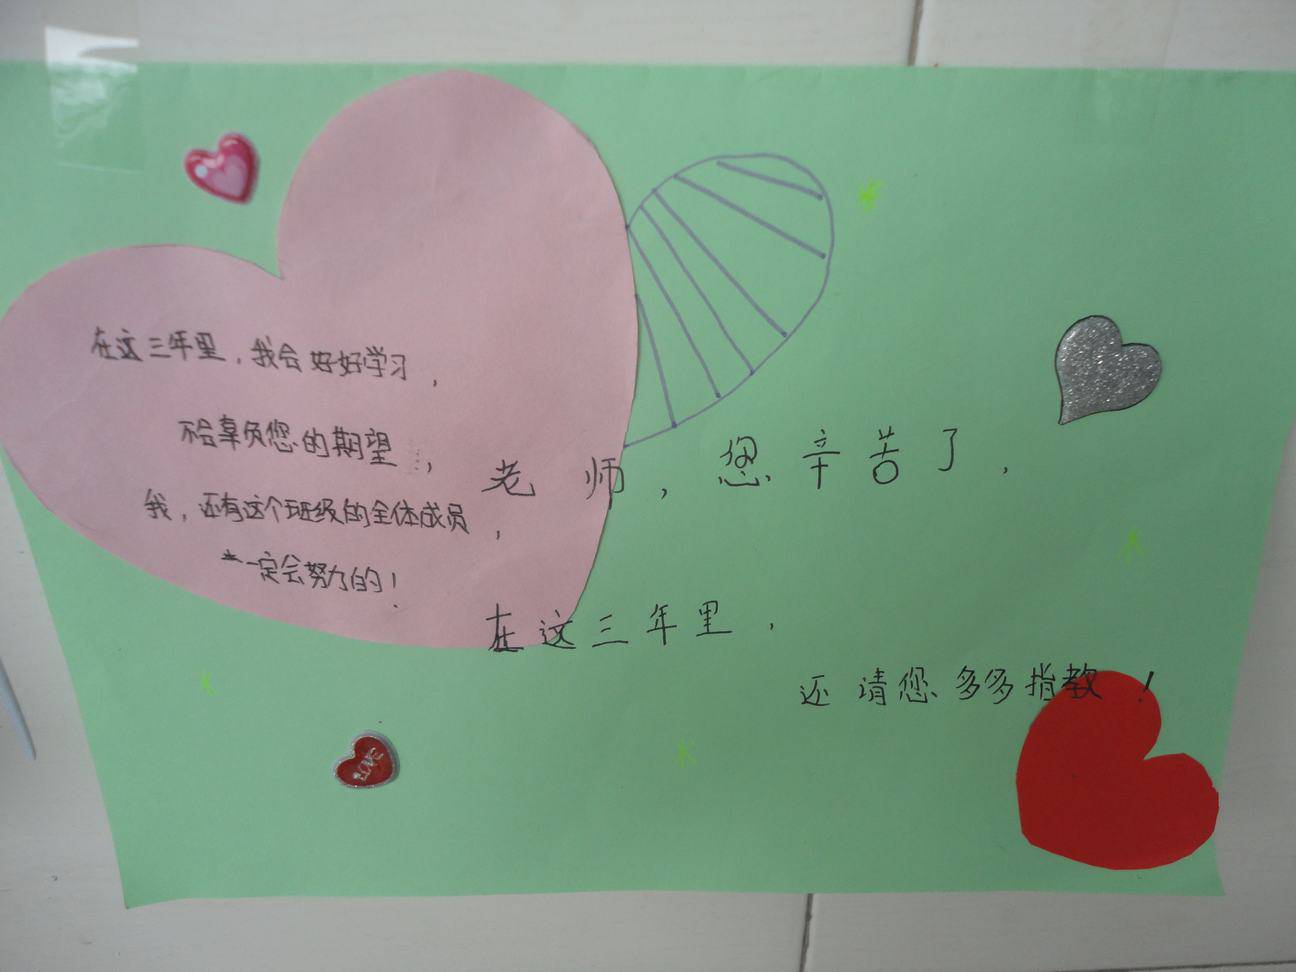 在这三年里，我会好好学习，
不会辜负您的期望，
我，还有这个班级的全体成员，
一定会努力的！
老师，您辛苦了，
在这三年里，
还请您多多指教！
LOVE